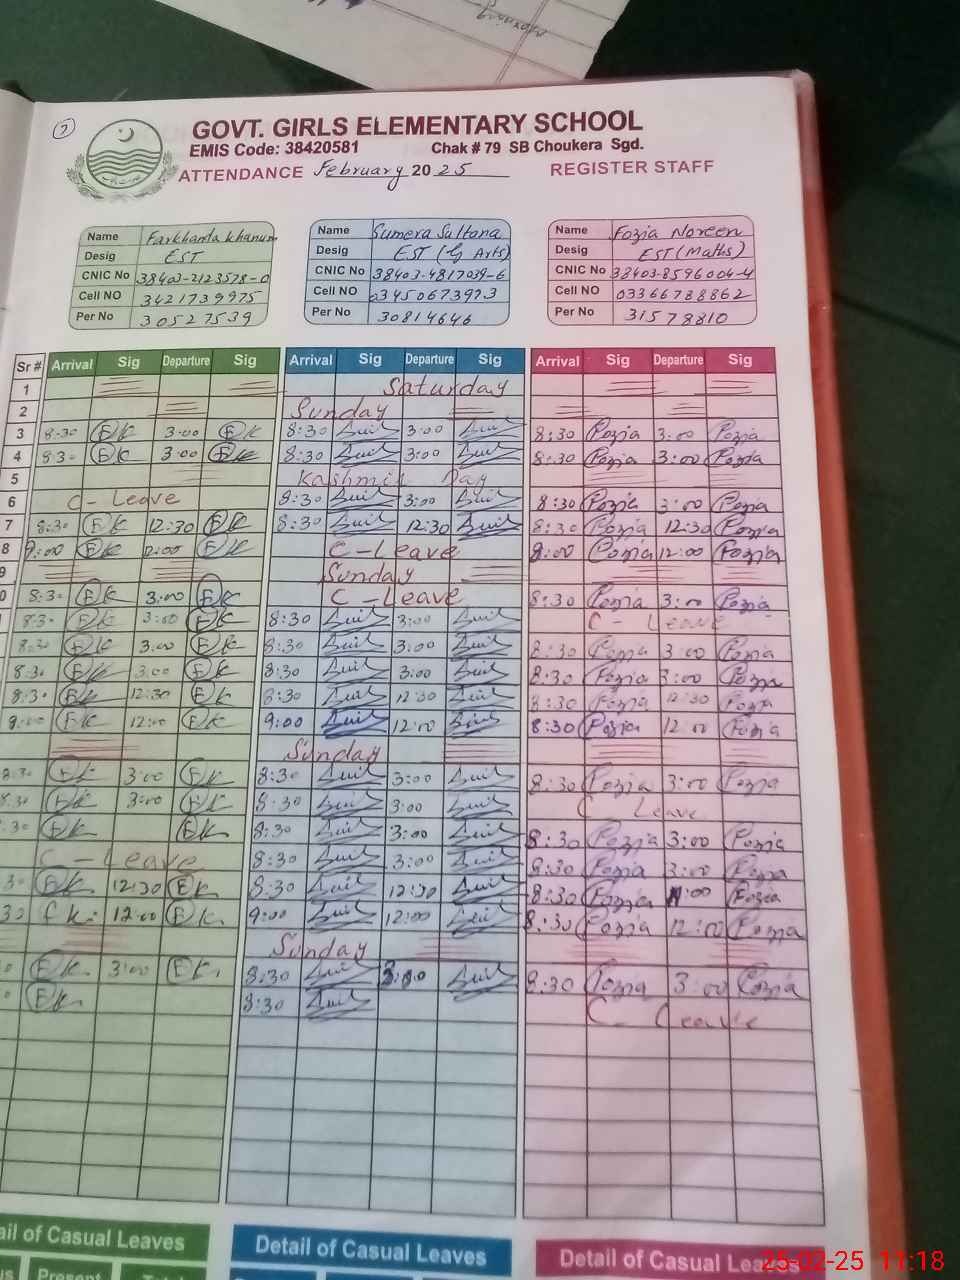 GOVT. GIRLS ELEMENTARY SCHOOL
EMIS Code: 38420581 Chak # 79 SB Choukera Sgd.
ATTENDANCE February 2025 REGISTER STAFF
Name Farkhanda Khanum Name Sumera Sultana Name Fozia Noreen
Desig EST Desig EST Arts) Desig EST (Maths)
CNIC No 38403-2123578-0 CNIC No 38403-4817039-6 CNIC No 38403-8596004-4
Cell NO 3421739975 Cell NO 03450673973 Cell NO 03366788862
Per No 30527539 Per No 30814646 Per No 31578810
Sr # Arrival Sig Departure Sig Arrival Sig Departure Sig Arrival Sig Departure Sig
1 Saturday
2 Sunday
3 8:30 FK 3:00 FK 8:30 3:00 8:30 Fozia 3:00 Fozia
4 8:30 FK 3:00 FK 8:30 3:00 8:30 Fozia 3:00 Fozia
5 Kashmir Day
6 C-Leave 8:30 3:00 8:30 Fozia 3:00 Fozia
7 8:30 FK 12:30 FK 8:30 12:30 8:30 Fozia 12:30 Fozia
8 9:00 FK 12:00 FK C-Leave 8:00 Fozia 12:00 Fozia
9 Sunday
0 8:30 FK 3:00 FK C-Leave 8:30 Fozia 3:00 Fozia
8:30 FK 3:00 FK 8:30 3:00 C-Leave
8:30 FK 3:00 FK 8:30 3:00 8:30 Fozia 3:00 Fozia
8:30 FK 3:00 FK 8:30 3:00 8:30 Fozia 3:00 Fozia
8:30 FK 12:30 FK 8:30 12:30 8:30 Fozia 12:30 Fozia
9:00 FK 12:00 FK 9:00 12:00 8:30 Fozia 12:00 Fozia
Sunday
8:30 FK 3:00 FK 8:30 3:00 8:30 Fozia 3:00 Fozia
8:30 FK 3:00 FK 8:30 3:00 C Leave
:30 FK FK 8:30 3:00 8:30 Fozia 3:00 Fozia
C-Leave 8:30 3:00 8:30 Fozia 3:00 Fozia
30 FK 12:30 FK 8:30 12:30 8:30 Fozia Fozia
30 FK 12:00 FK 9:00 12:00 8:30 Fozia 12:00 Fozia
Sunday
0 FK 3:00 FK 8:30 3:00 8:30 Fozia 3:00 Fozia
0 FK 8:30 C-Leave
ail of Casual Leaves Detail of Casual Leaves Detail of Casual Leaves
Present
25-02-25 11:18